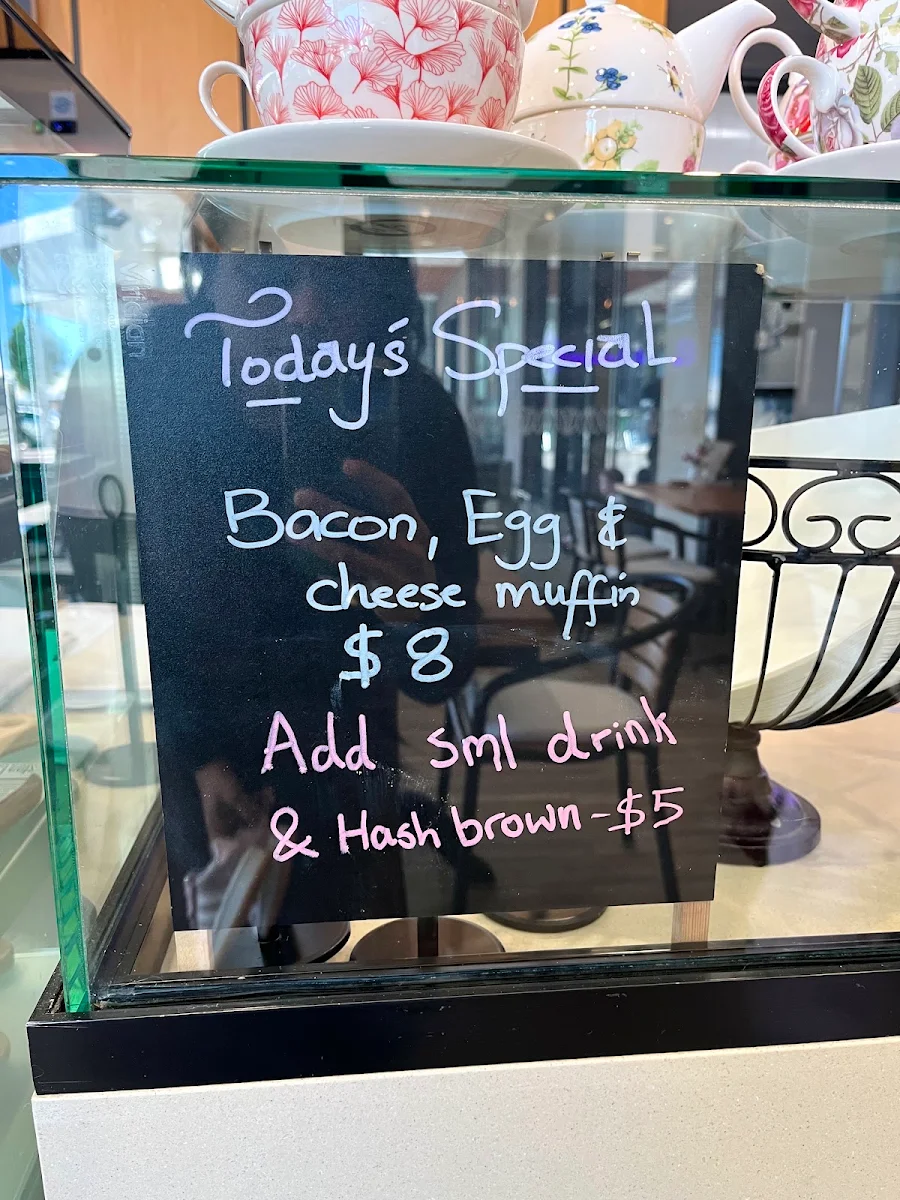 Today's Special
Bacon, Egg &
cheese muffin
$8
Add sml drink
& Hash brown - $5